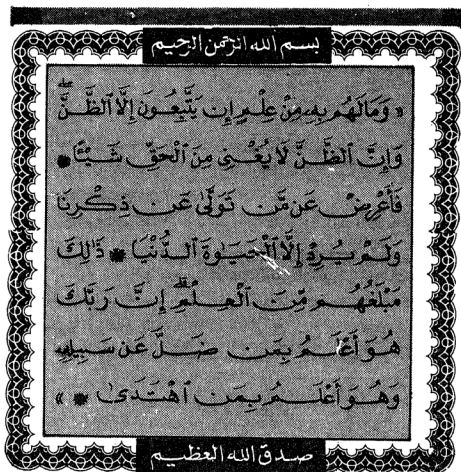 بسم الله الرحمن الرحيم
« وَمَا لَهُم بِهِ مِنْ عِلْمٍ إِن يَتَّبِعُونَ إِلَّا ٱلظَّنَّ
وَإِنَّ ٱلظَّنَّ لَا يُغْنِى مِنَ ٱلْحَقِّ شَيْـًٔا *
فَأَعْرِضْ عَن مَّن تَوَلَّىٰ عَن ذِكْرِنَا
وَلَمْ يُرِدْ إِلَّا ٱلْحَيَوٰةَ ٱلدُّنْيَا * ذَٰلِكَ
مَبْلَغُهُم مِّنَ ٱلْعِلْمِ إِنَّ رَبَّكَ
هُوَ أَعْلَمُ بِمَن ضَلَّ عَن سَبِيلِهِ
وَهُوَ أَعْلَمُ بِمَنِ ٱهْتَدَىٰ * »
صدق الله العظيم